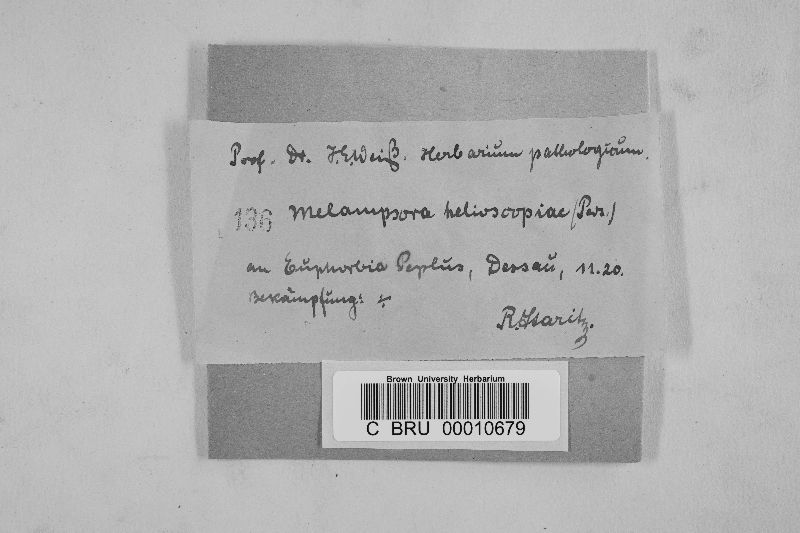 Prof. Dr. J.E.Weiß. Herbarium pathologicum.
136 Melampsora helioscopiae (Pers.)
an Euphorbia Peplus, Dessau, 11.20.
Bekämpfung: ÷
R.Staritz.
Brown University Herbarium
C BRU 00010679